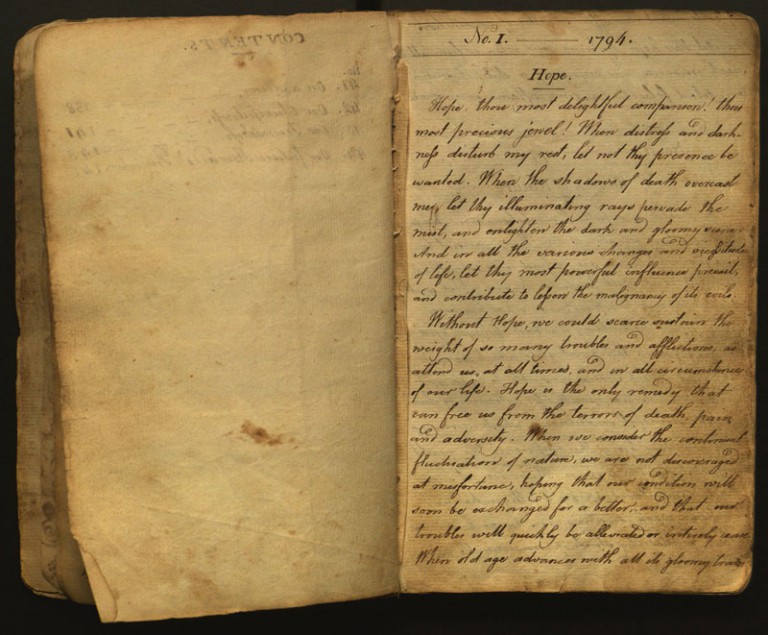 CONTENTS.
No. 1. 1794.
Hope.
Hope thou most delightful companion! thou
most precious jewel! When distress and dark-
ness disturb my rest, let not thy presence be
wanted. When the shadows of death overcast
me, let thy illuminating rays pervade the
mist, and enlighten the dark and gloomy
And in all the various changes and vicissitudes
of life, let thy most powerful influence prevail,
and contribute to lessen the malignancy of its evils.
Without Hope, we could scarce sustain the
weight of so many troubles and afflictions, as
attend us, at all times, and in all circumstances
of our life. Hope is the only remedy that
can free us from the terrors of death, pain,
and adversity. When we consider the continual
fluctuation of nature, we are not discouraged
at misfortune, hoping that our condition will
soon be exchanged for a better, and that our
troubles will quickly be alleviated or intirely cease.
When old age advances with all its gloomy train